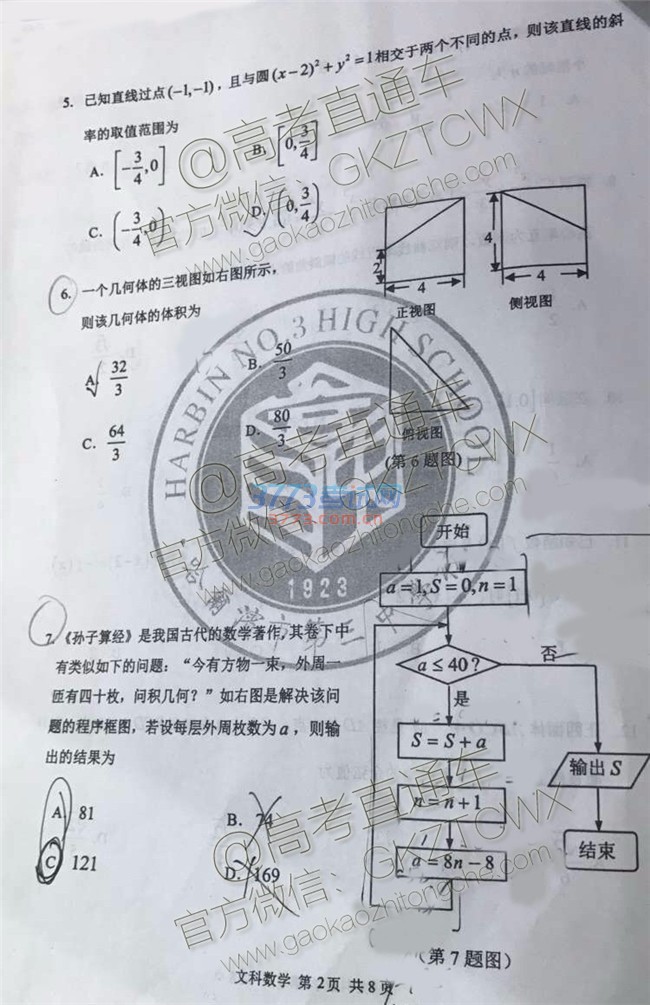 5. 已知直线过点(-1,-1)，且与圆(x-2)²+y²=1相交于两个不同的点，则该直线的斜
率的取值范围为
A. [-3/4,0]    B. [0,3/4]
C. (-3/4,0)    D. (0,3/4)
6. 一个几何体的三视图如右图所示，
则该几何体的体积为
A. 32/3    B. 50/3
C. 64/3    D. 80/3
2
4
4
4
正视图
侧视图
俯视图
(第6题图)
7. 《孙子算经》是我国古代的数学著作，其卷下中
有类似如下的问题：“今有方物一束，外周一
匝有四十枚，问积几何？”如右图是解决该问
题的程序框图，若设每层外周枚数为a，则输
出的结果为
A. 81    B. 74
C. 121    D. 169
开始
a=1,S=0,n=1
a≤40?
否
是
S=S+a
n=n+1
a=8n-8
输出S
结束
(第7题图)
文科数学 第2页 共8页
@高考直通车
官方微信：GKZTCWX
www.gaokaozhitongche.com
HARBIN NO.3 HIGH SCHOOL
1923
3773考试网
3773.com.cn
@高考直通车
官方微信：GKZTCWX
www.gaokaozhitongche.com
@高考直通车
官方微信：GKZTCWX
www.gaokaozhitongche.com